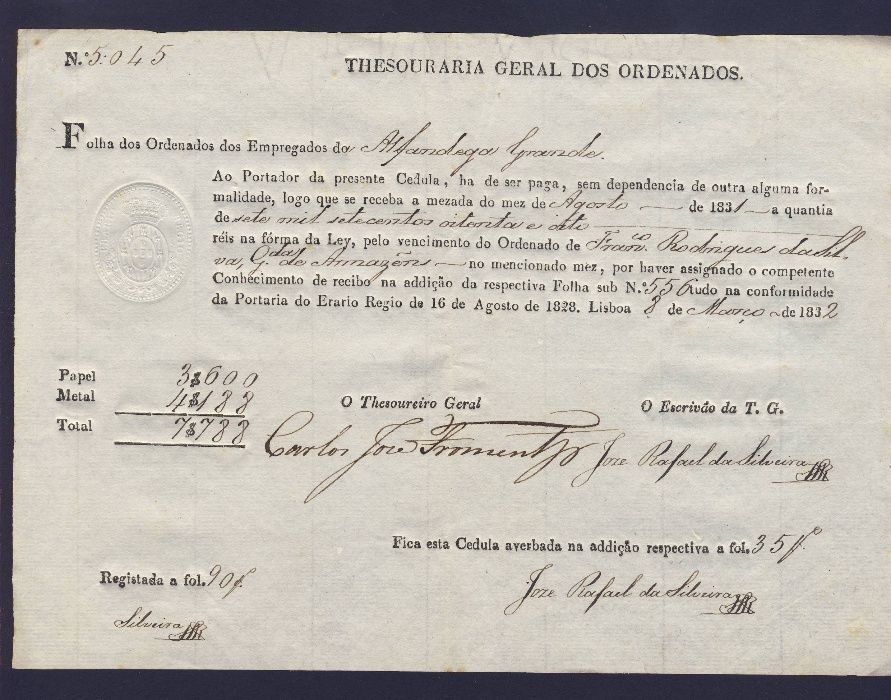 N.º 5:045
THESOURARIA GERAL DOS ORDENADOS.
Folha dos Ordenados dos Empregados da Alfandega Grande.
Ao Portador da presente Cedula, ha de ser paga, sem dependencia de outra alguma for-
malidade, logo que se receba a mezada do mez de Agosto — de 1831 — a quantia
de sete mil setecentos oitenta e oito
réis na fórma da Ley, pelo vencimento do Ordenado de Franco. Rodrigues da Sil-
va, Gda de Armazẽns — no mencionado mez, por haver assignado o competente
Conhecimento de recibo na addição da respectiva Folha sub N.º 556 tudo na conformidade
da Portaria do Erario Regio de 16 de Agosto de 1828. Lisboa 8 de Março de 1832
Papel 3$600
Metal 4$188
Total 7$788
O Thesoureiro Geral
O Escrivão da T. G.
Carlos Jose Froment
Jose Rafael da Silveira
Fica esta Cedula averbada na addição respectiva a fol. 35
Registada a fol. 90
Jose Rafael da Silveira
Silveira